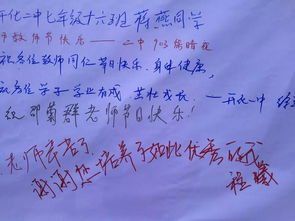 开化二中七年级十六班 蒋燕同学
教师节快乐——二中
各位教师同仁节日快乐、身体健康,
各位学子学业有成 茁壮成长. —开化一中
祝邵菊群老师节日快乐!
老师辛苦了
谢谢您培养了如此优秀的我